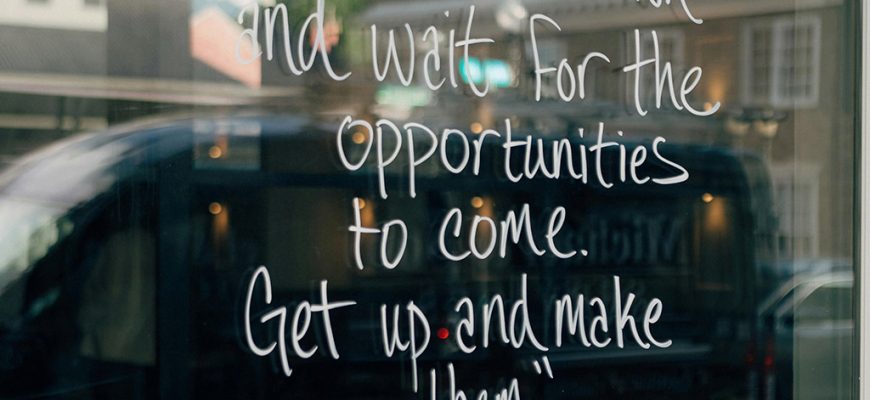 and wait for the
Opportunities
to come.
Get up and make
them"